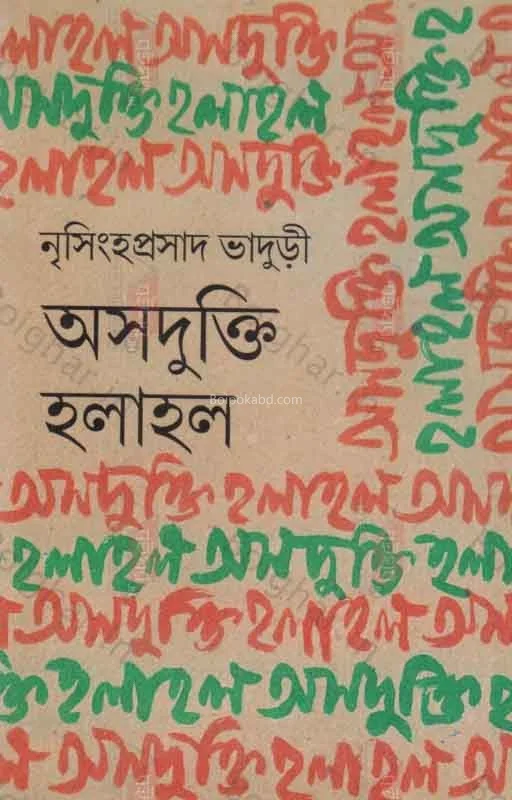 হলাহল অসদুক্তি
অসদুক্তি হলাহল
হলাহল অসদুক্তি
অসদুক্তি হলাহল
হলাহল অসদুক্তি
নৃসিংহপ্রসাদ ভাদুড়ী
অসদুক্তি
হলাহল
Boipokabd.com
অসদুক্তি হলাহল
হলাহল অসদুক্তি
অসদুক্তি হলাহল
হলাহল অসদুক্তি
অসদুক্তি হলাহল